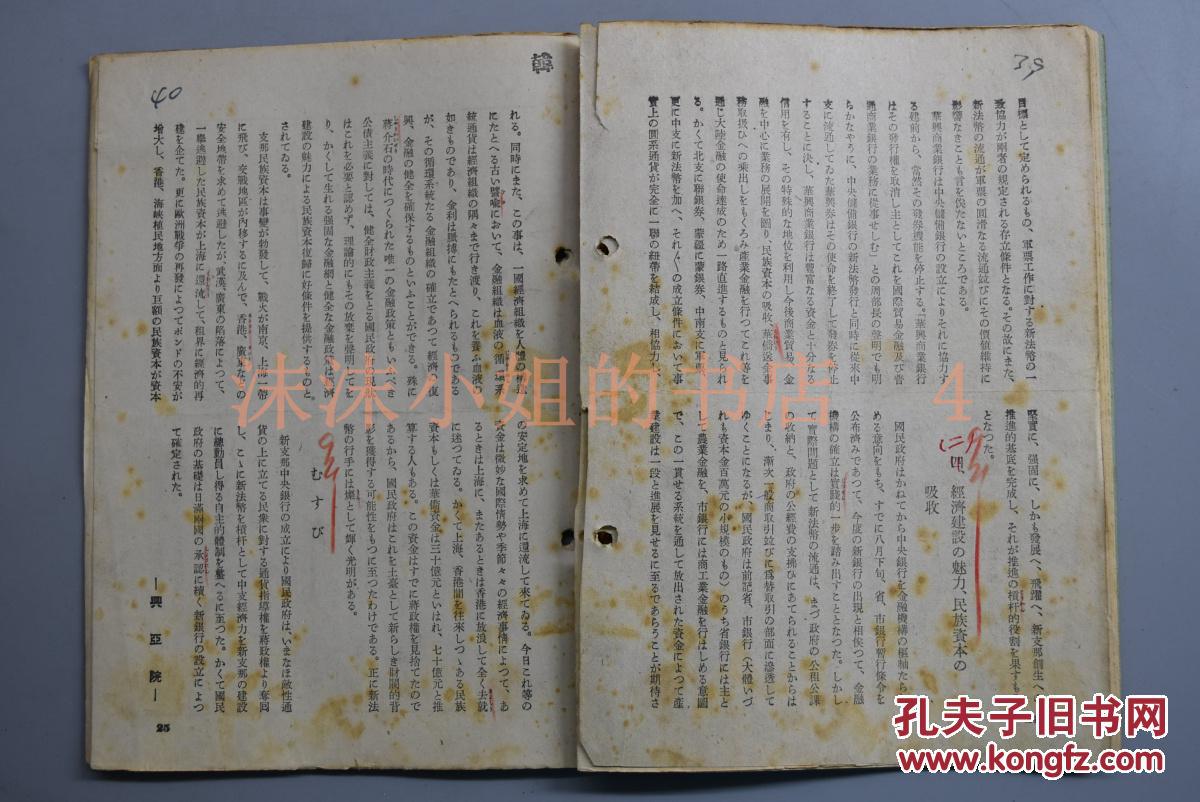 39
目標として定められるもの、軍票工作に對する新法幣の一
致協力が兩者の規定される存立條件となる。その故にまた、
新法幣の流通が軍票の圓滑なる流通竝びにその價値維持に
影響なきことも言を俟たないところである。
華興商業銀行は中央儲備銀行の設立によりそれに協力す
る建前から、當然その發券機能を停止する。「華興商業銀行
はその發行權を取消し主としてこれを國際貿易金融及び普
通商業銀行の業務に從事せしむ」との周部長の聲明でも明
らかなやうに、中央儲備銀行の新法幣發行と同時に從來中
支に流通してゐた華興券はその使命を終了して發券を停止
することに決し、華興商業銀行は豐富なる資金と十分なる
信用を有し、その特殊的な地位を利用し今後商業貿易、金
融を中心に業務の展開を圖り、民族資本の吸收、華僑送金事
務取扱ひへの乘出しをもくろみ產業金融を行つてこれ等を
通じ大陸金融の使命達成のため一路直進するものと見られ
る。かくて北支に聯銀券、蒙疆に蒙銀券、中南支に軍票、
更に中支に新法幣を加へ、それ〲の成立條件において事
實上の圓系通貨が完全に一聯の紐帶を結成し、相協力し、
堅實に、强固に、しかも發展へ、飛躍へ、新支那創生へ
推進的基底を完成し、それが推進の槓杆的役割を果すも
となつた。
四、
經濟建設の魅力、民族資本の
吸收
國民政府はかねてから中央銀行を金融機構の樞軸たら
める意向をもち、すでに八月下旬、省、市銀行暫行條令を
公布濟みであつて、今度の新銀行の出現と相俟つて、金融
機構の確立は實踐的一步を踏み出すこととなつた。しかし
て實際問題として新法幣の流通は、まづ政府の公租公課
の收納と、政府の公經費の支拂ひにあてられることからは
じまり、漸次一般商取引竝びに爲替取引の部面に滲透して
ゆくことになるが、國民政府は前記省、市銀行（大體いづ
れも資本金百萬元の小規模のもの）のうち省銀行には主と
して農業金融を、市銀行には商工業金融を行はしめる意圖
で、この一貫せる系統を通して放出された資金によつて產
業建設は一段と進展を見せるに至るであらうことが期待さ
40
韓
れる。同時にまた、この事は、一國經濟組織を人體の
にたとへる古い譬喩において、金融組織は血液の循環系
統通貨は經濟組織の隅々まで行き渡り、これを養ふ血液の
如きものであり、金利は脈搏にもたとへられるものである
が、その循環系統たる金融組織の確立であつて經濟の復
興、金融の健全を確保するものといふことができる。殊に
蔣介石の時代につくられた唯一の金融政策ともいふべき
公債主義に對しては、健全財政主義をとる國民政府の現狀
はこれを必要と認めず、理論的にもその放棄を聲明してを
り、かくして生れる强固な金融網と健全な金融政策は經濟
建設の魅力による民族資本復歸に好條件を提供するものと
されてゐる。
支那民族資本は事變が勃發して、戰火が南京、上海一帶
に飛び、交戰地區が內移するに及んで、香港、廣東などの
安全地帶を求めて逃避したが、武漢、廣東の陷落によつて、
一擧逃避した民族資本が上海に還流して、租界に經濟的再
建を企てた。更に歐洲戰爭の再發によつてポンドの不安が
增大し、香港、海峽植民地方面より巨額の民族資本が資本
の安定地を求めて上海に還流して來てゐる。今日これ等の
資金は微妙な國際情勢や季節々々の經濟事情によつて、あ
るときは上海に、またあるときは香港に放浪して全く去就
に迷つてゐる。かくて上海、香港間を往來しつゝある民族
資本もしくは華僑資金は三十億元といはれ、七十億元と推
算する人もある。この資金はすでに蔣政權を見捨てたので
あるから、國民政府はこれを土臺として新らしき財閥的背
影を獲得する可能性をもつに至つたわけである。正に新法
幣の行手には燦として輝く光明がある。
むすび
新支那中央銀行の成立により國民政府は、いまなほ敵性通
貨の上に立てる民衆に對する通貨指導權を蔣政權より奪回
し、こゝに新法幣を槓杆として中支經濟力を新支那の建設
に總動員し得る自主的體制を整へるに至つた。かくて國民
政府の基礎は日滿兩國の承認に續く新銀行の設立によつ
て確定された。
—興亞院—
25
沫沫小姐的书店 4
孔夫子旧书网
www.kongfz.com